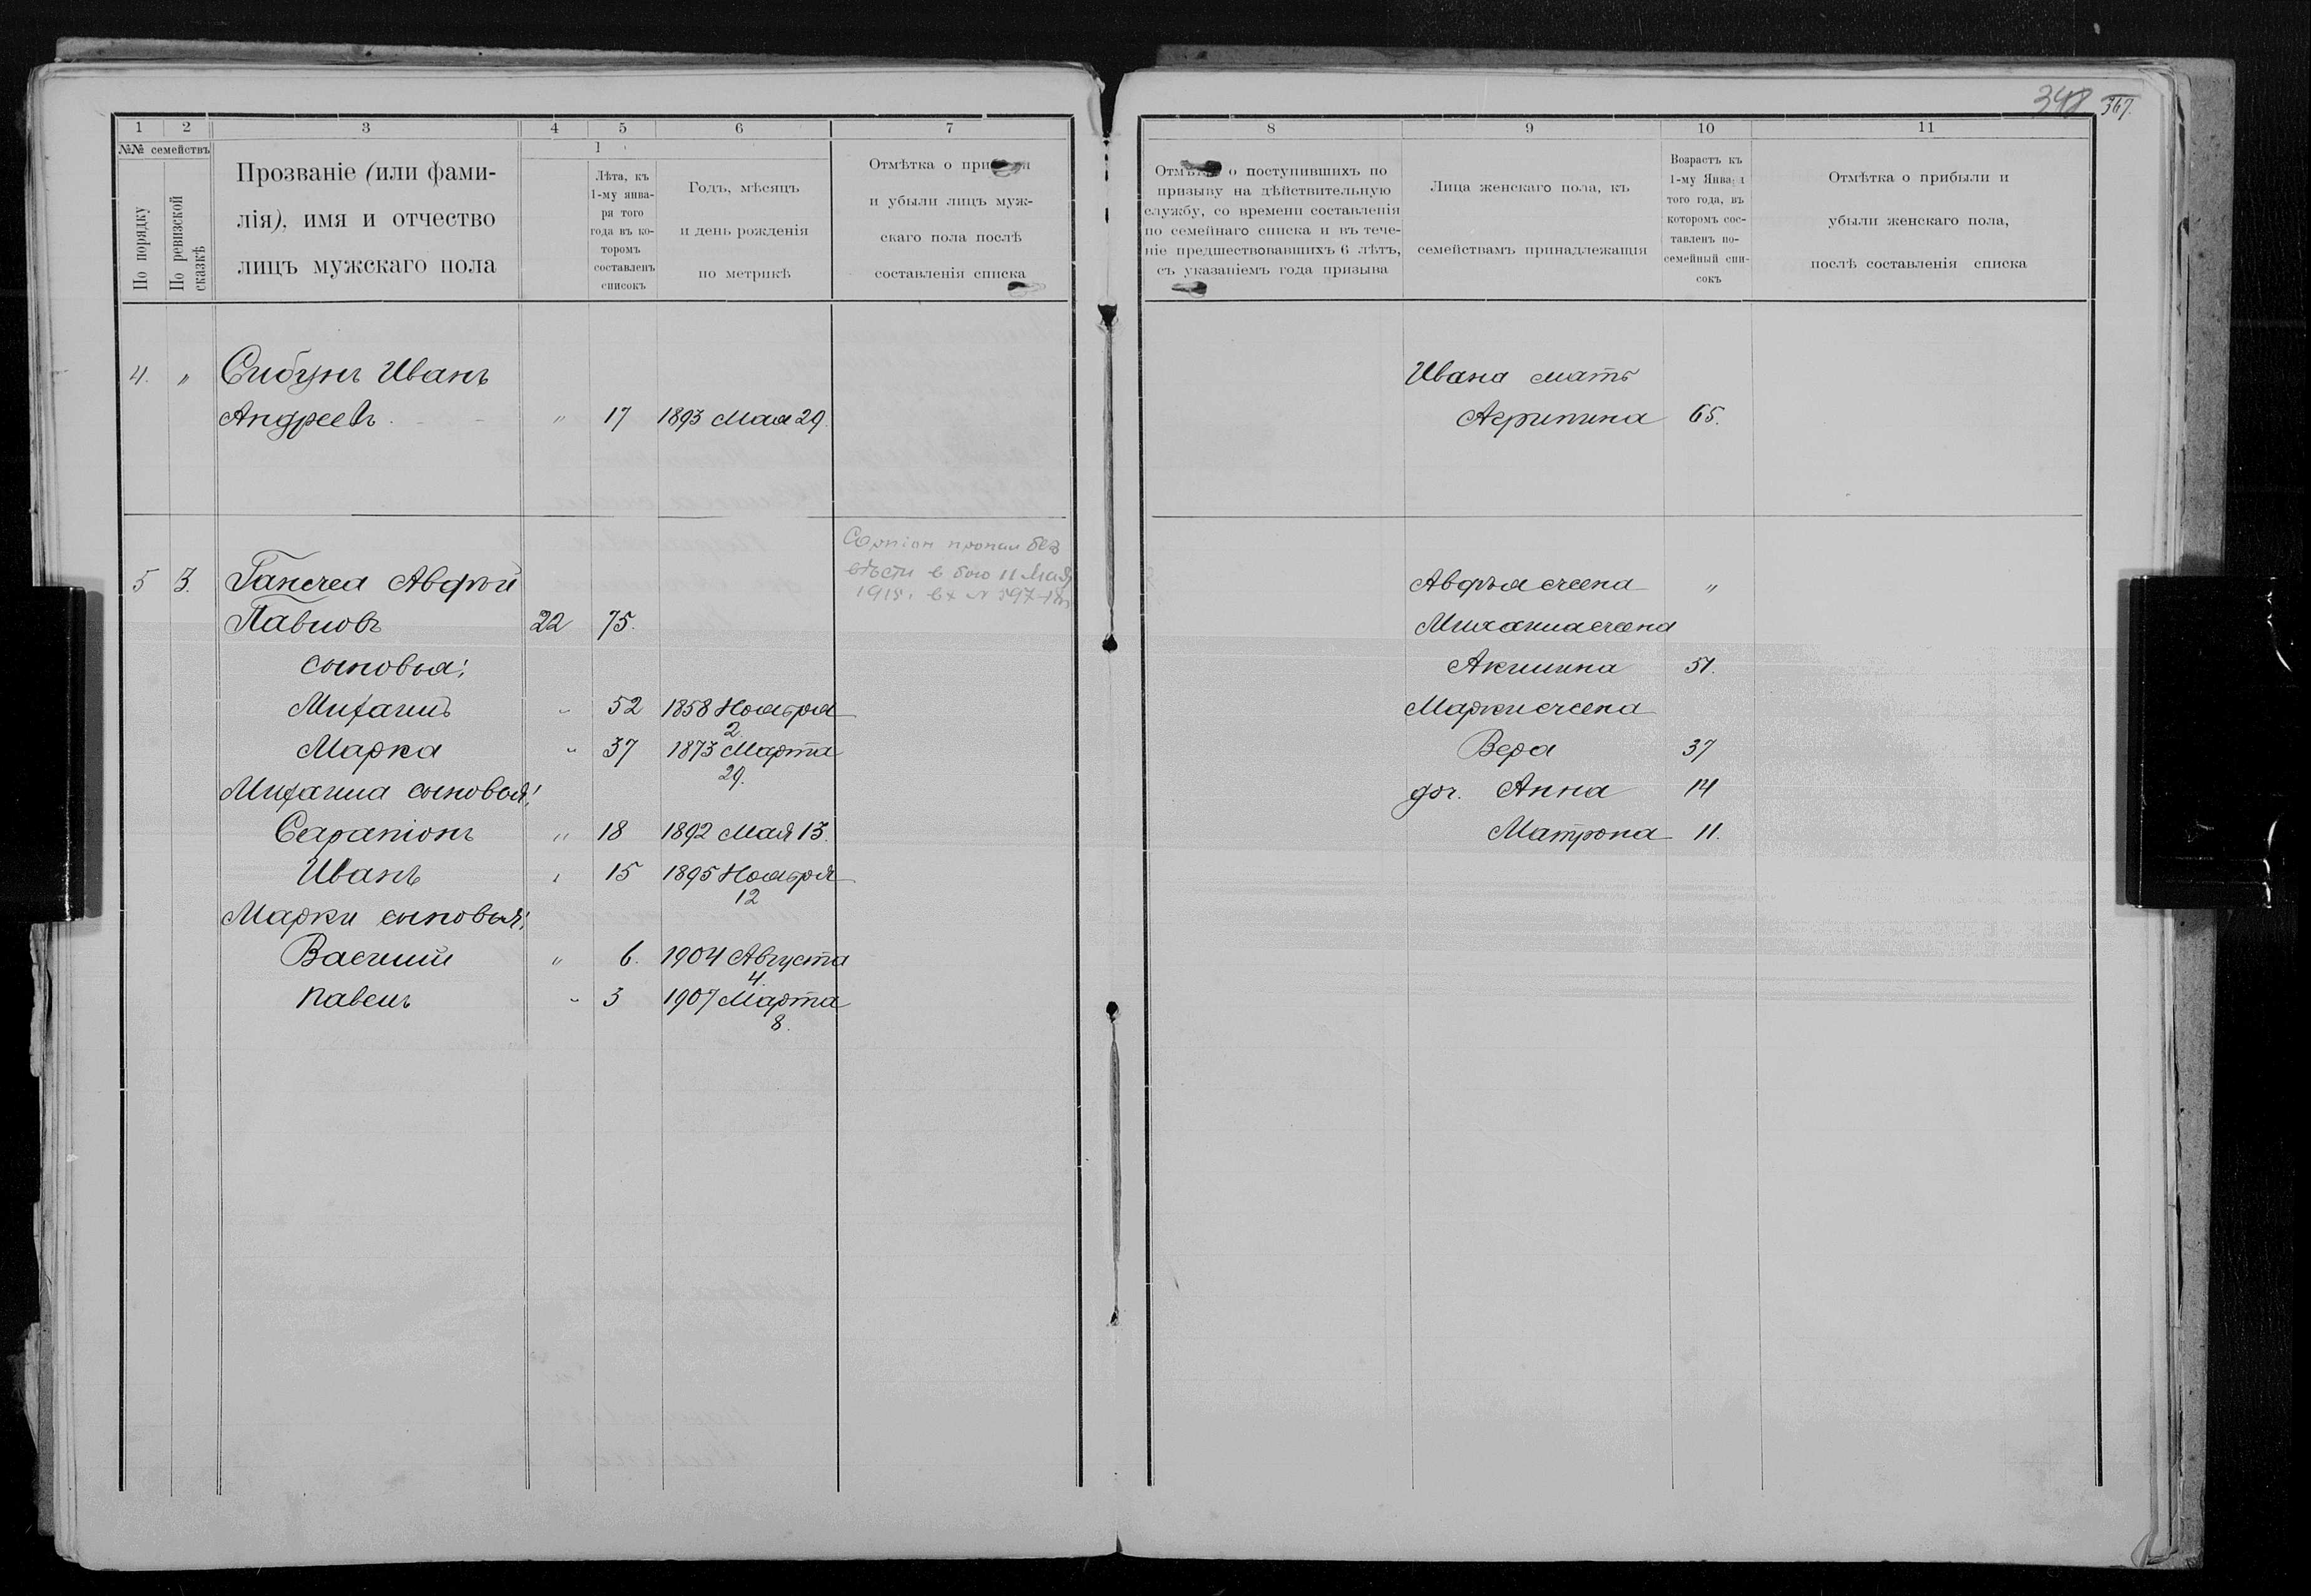 348 367.
1 2 3 4 5 6 7
№№ семействъ
По порядку
По ревизской сказкѣ
Прозваніе (или фами-
лія), имя и отчество
лицъ мужскаго пола
1
Лѣта, къ
1-му янва-
ря того
года въ ко-
торомъ
составленъ
списокъ
Годъ, мѣсяцъ
и день рожденія
по метрикѣ
Отмѣтка о прибыли
и убыли лицъ муж-
скаго пола послѣ
составленія списка
4. " Сибунъ Иванъ
Андреевъ " 17 1893 Мая 29.
Сарпіон пропал без
вѣсти в бою 11 Мая
1915 г. вх № 597-18
5 3. Гапега Авдѣй
Павловъ 22 75.
сыновья:
Михаилъ " 52 1858 Ноября
2.
Марка " 37 1873 Марта
29.
Михаила сыновья:
Серапіонъ " 18 1892 Мая 13.
Иванъ " 15 1895 Ноября
12
Марки сыновья:
Василий " 6. 1904 Августа
4.
Павелъ " 3 1907 Марта
8.
8 9 10 11
Отмѣтка о поступившихъ по
призыву на дѣйствительную
службу, со времени составленія
по семейнаго списка и въ тече-
ніе предшествовавшихъ 6 лѣтъ,
съ указаніемъ года призыва
Лица женскаго пола, къ
семействамъ принадлежащія
Возрастъ къ
1-му Января
того года, въ
которомъ сос-
тавленъ по-
семейный спи-
сокъ
Отмѣтка о прибыли и
убыли женскаго пола,
послѣ составленія списка
Ивана мать
Агрипина 65.
Авдѣя жена "
Михаила жена
Акилина 51.
Марки жена
Вера 37
доч. Анна 14
Матрона 11.